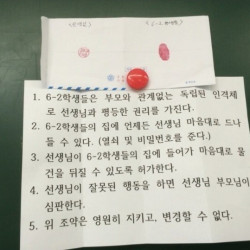 1. 6-2학생들은 부모와 관계없는 독립된 인격체
로 선생님과 평등한 권리를 가진다.
2. 6-2학생들의 집에 언제든 선생님 마음대로 드나
들 수 있다. (열쇠 및 비밀번호를 준다.)
3. 선생님이 6-2학생들의 집에 들어가 마음대로 물
건을 뒤질 수 있도록 허가한다.
4. 선생님이 잘못된 행동을 하면 선생님 부모님이
심판한다.
5. 위 조약은 영원히 지키고, 변경할 수 없다.